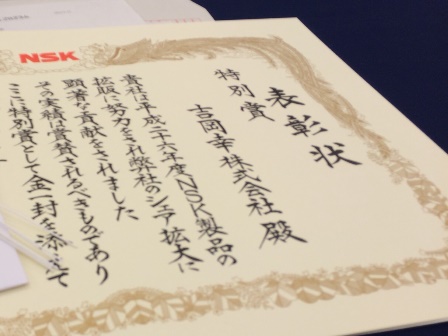 NSK
表彰状
特別賞
吉岡幸株式会社殿
貴社は平成二十六年度NSK製品の
拡販に努力をされ弊社のシェア拡大に
顕著な貢献をされました
その実績は賞賛されるべきものであり
ここに特別賞として金一封を添えて